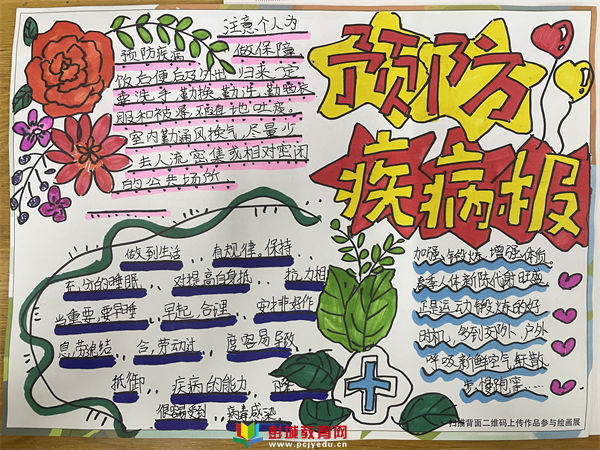 预防
疾病报
注意个人为
预防疾病 做保障
饭后便后及外出归来一定
要洗手，勤换、勤洗、勤晒衣
服和被褥，不随地吐痰。
室内勤通风换气，尽量少
去人流密集或相对密闭
的公共场所。
做到生活 有规律。保持
充分的睡眠 对提高自身抵 抗力相
当重要，要早睡 早起，合理 安排作
息，劳逸结 合，劳动过 度容易导致
抵御 疾病的能力
病毒感染
加强锻炼，增强体质。
春季人体新陈代谢旺盛
正是运动锻炼的好
时机，多到郊外、户外
呼吸新鲜空气，散
步、慢跑
扫描背面二维码上传作品参与绘画展
彭城教育网
www.pcjyedu.cn